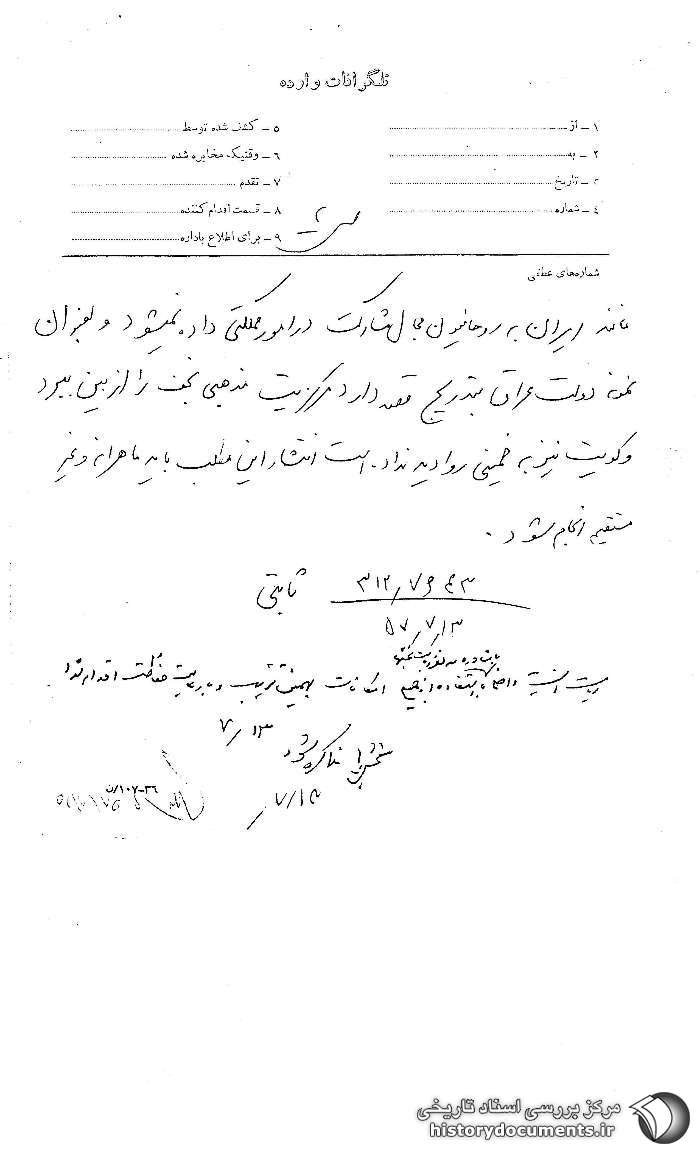 تلگرافات وارده
۱ ـ از
۲ ـ به
۳ ـ تاریخ
۴ ـ شماره
۵ ـ کشف شده توسط
۶ ـ وقتیکه مخابره شده
۷ ـ تقدم
۸ ـ قسمت اقدام کننده
۹ ـ برای اطلاع باداره
شماره‌های عطفی
مانند ایران به روحانیون مجال مشارکت در امور مملکتی داده نمیشود و بعنوان
نمونه دولت عراق بتدریج قصد دارد مرکزیت مذهبی نجف را از بین ببرد
و کویت نیز به خمینی روادید نداده است انتشار این مطلب باید ماهرانه و غیر
مستقیم انجام شود .
ثابتی
۵۷/۷/۱۳
استفاده از جمیع امکانات بهمین ترتیب و با رعایت حفاظت اقدام
۷/۱۳
مذاکره شود
۷/۱۳
ن/۱۰۷-۳۶
مرکز بررسی اسناد تاریخی
historydocuments.ir